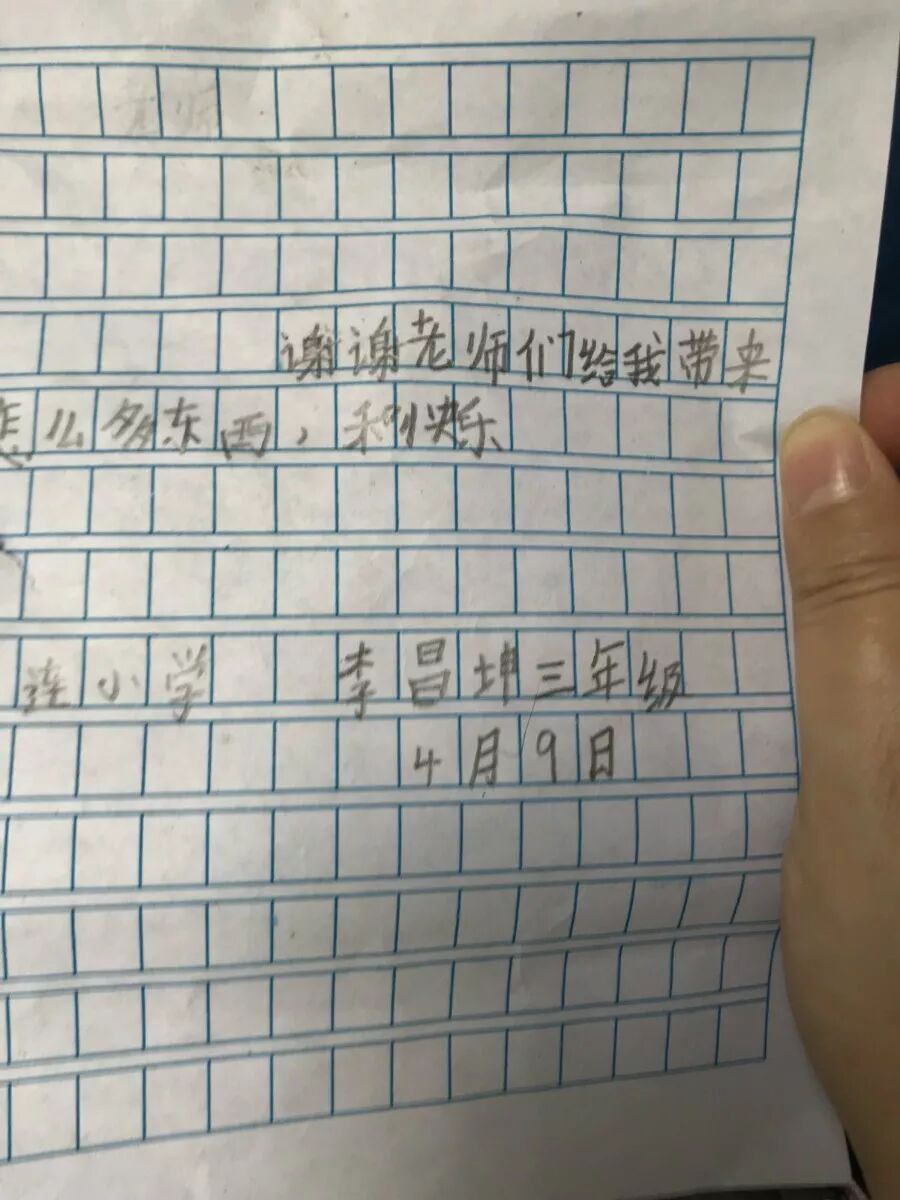 谢谢老师们给我带来
怎么多东西，和快乐
莲小学 李昌坤三年级
4月9日